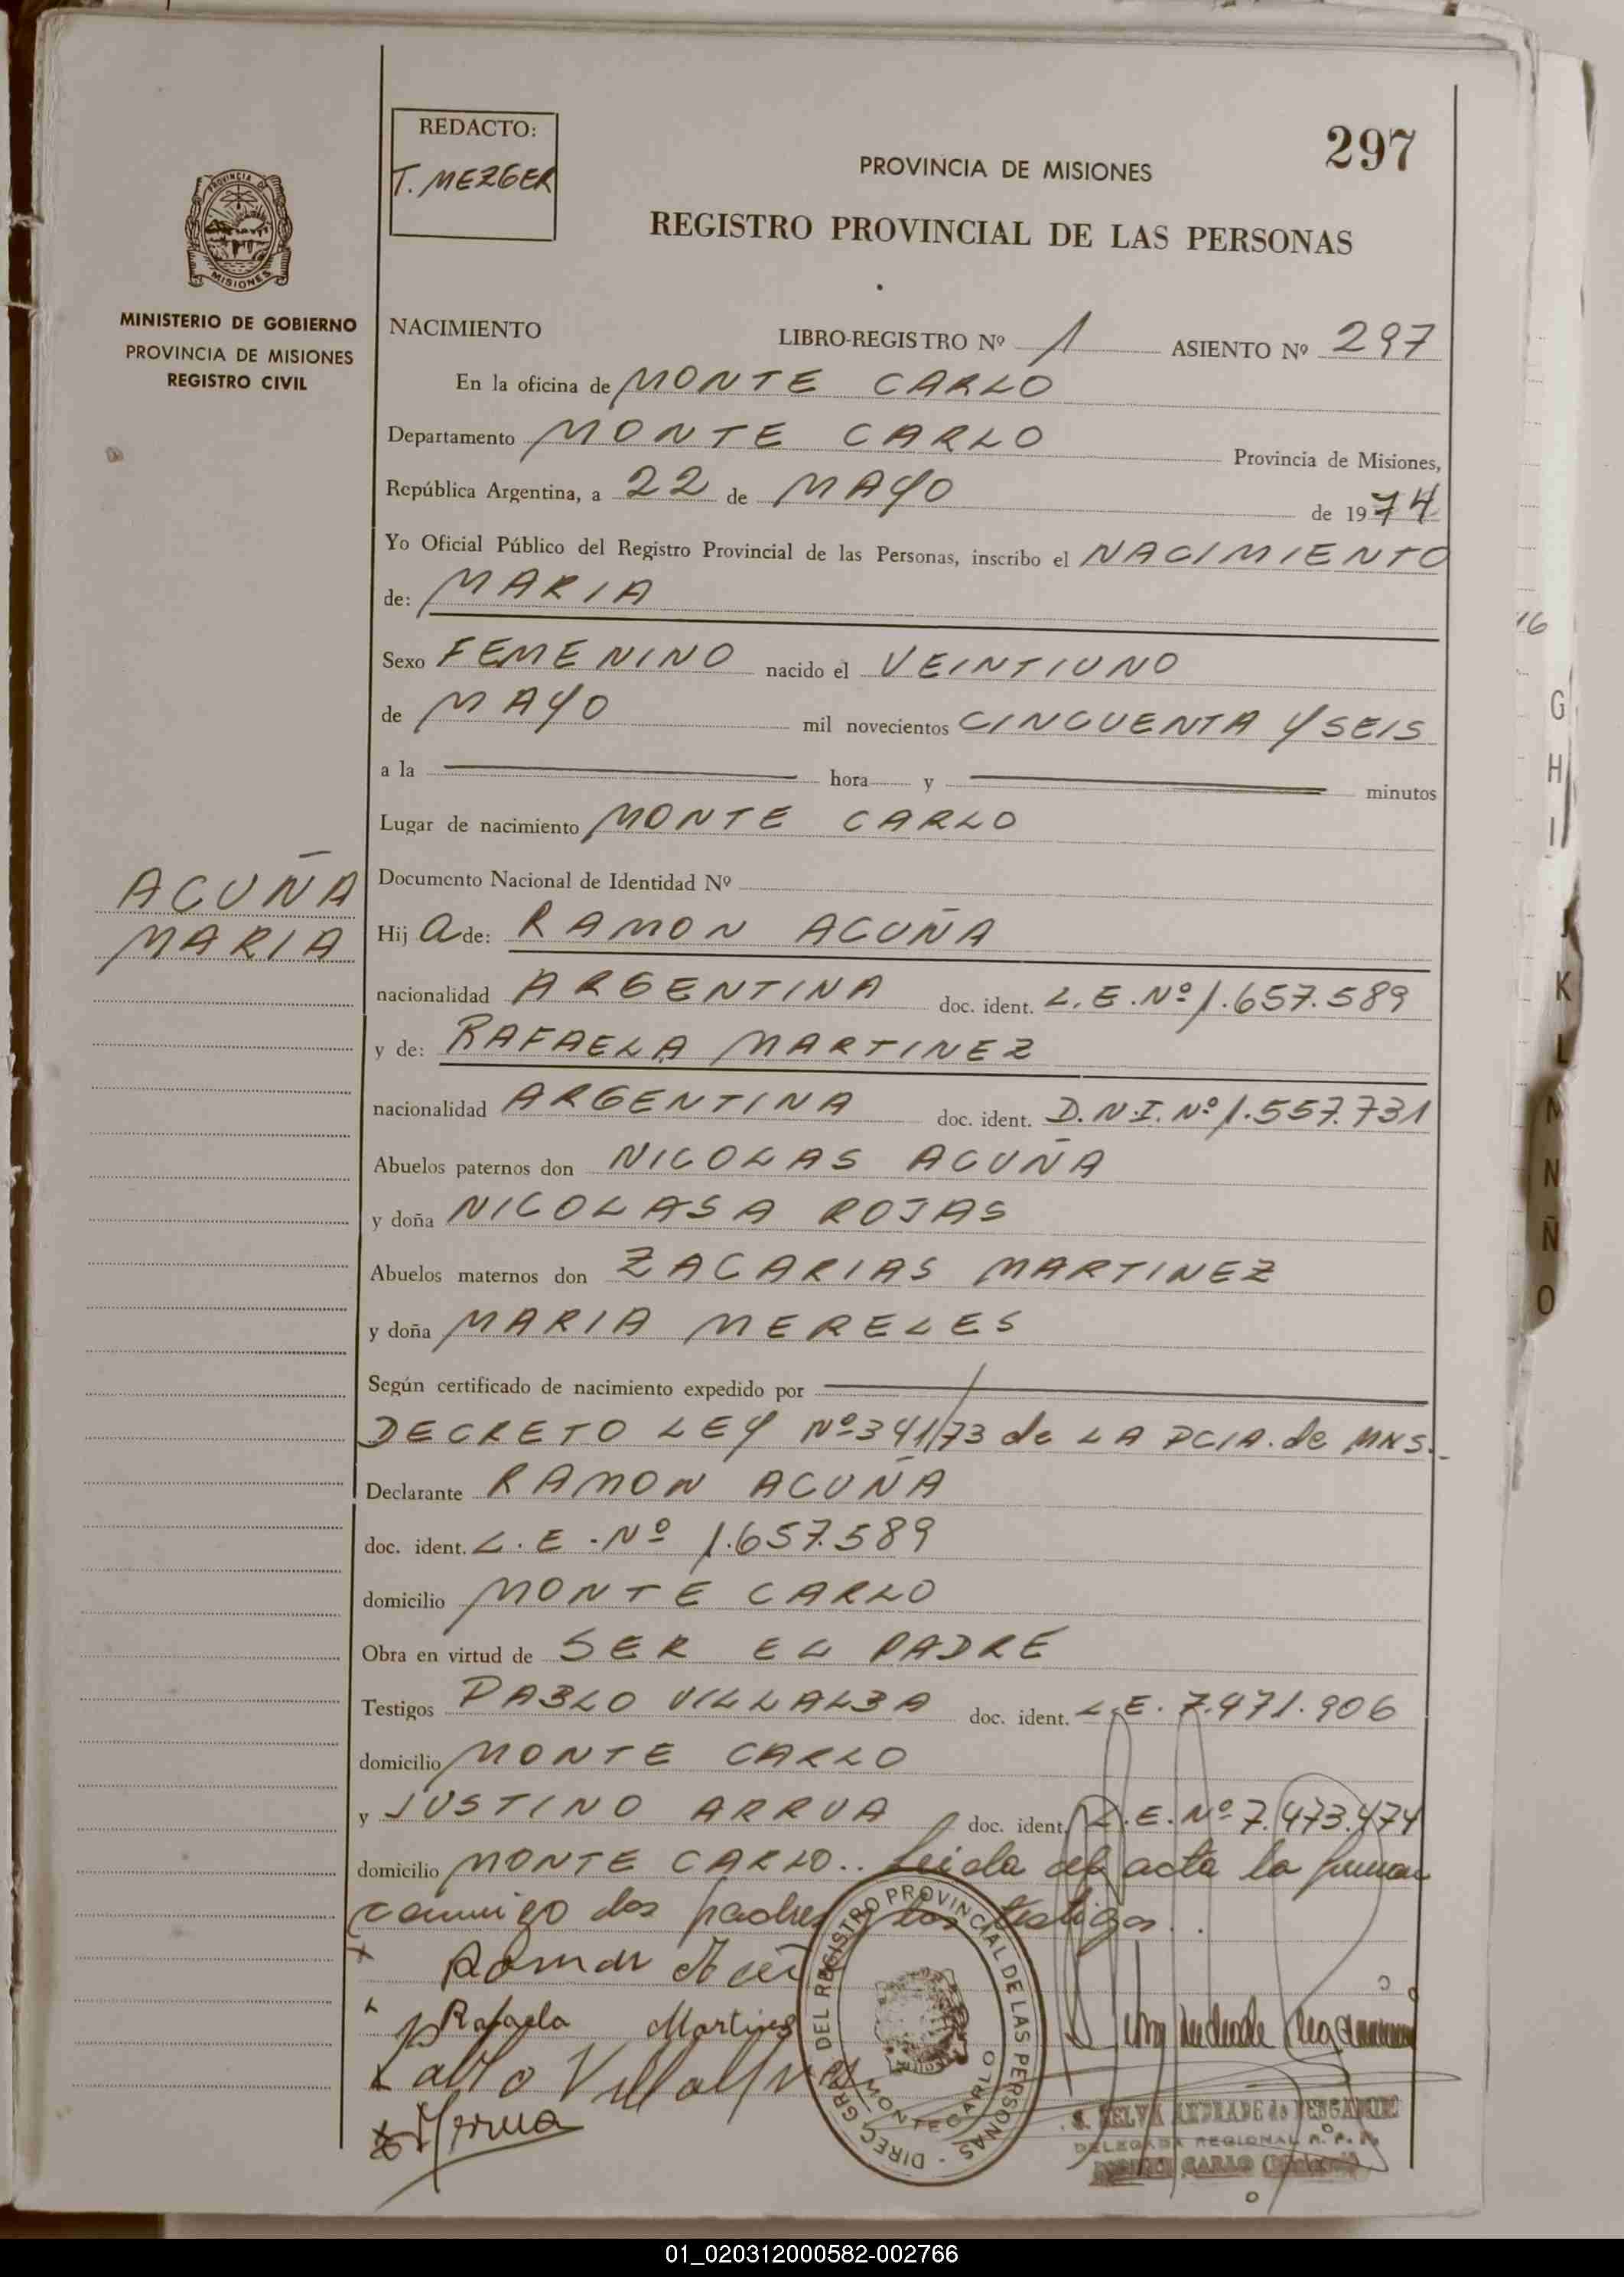 REDACTO:
T. MEZGER
297
PROVINCIA DE MISIONES
REGISTRO PROVINCIAL DE LAS PERSONAS
PROVINCIA DE
MISIONES
MINISTERIO DE GOBIERNO
PROVINCIA DE MISIONES
REGISTRO CIVIL
NACIMIENTO LIBRO-REGISTRO Nº 1 ASIENTO Nº 297
En la oficina de MONTE CARLO
Departamento MONTE CARLO Provincia de Misiones,
República Argentina, a 22 de MAYO de 1974
Yo Oficial Público del Registro Provincial de las Personas, inscribo el NACIMIENTO
de: MARIA
Sexo FEMENINO nacido el VEINTIUNO
de MAYO mil novecientos CINCUENTA Y SEIS
a la hora y minutos
Lugar de nacimiento MONTE CARLO
Documento Nacional de Identidad Nº
ACUÑA
MARIA
Hij a de: RAMON ACUÑA
nacionalidad ARGENTINA doc. ident. L.E.Nº 1.657.589
y de: RAFAELA MARTINEZ
nacionalidad ARGENTINA doc. ident. D.N.I.Nº 1.557.731
Abuelos paternos don NICOLAS ACUÑA
y doña NICOLASA ROJAS
Abuelos maternos don ZACARIAS MARTINEZ
y doña MARIA MERELES
Según certificado de nacimiento expedido por
DECRETO LEY Nº 341/73 de LA PCIA. de MNS.-
Declarante RAMON ACUÑA
doc. ident. L.E.Nº 1.657.589
domicilio MONTE CARLO
Obra en virtud de SER EL PADRE
Testigos PABLO VILLALBA doc. ident. L.E. 7.471.906
domicilio MONTE CARLO
y JUSTINO ARRUA doc. ident. L.E.Nº 7.473.474
domicilio MONTE CARLO.. Leida el acta la firman
conmigo los padres y los testigos..
Ramon Acuñ
Rafaela Martinez
Pablo Villalba
Arrua
DIREC. GRAL. DEL REGISTRO PROVINCIAL DE LAS PERSONAS
MONTECARLO
S. SELVA ANDRADE de
DELEGADA REGIONAL R. P. P.
CARLO
16
G
H
I
J
K
L
M
N
Ñ
O
01_020312000582-002766